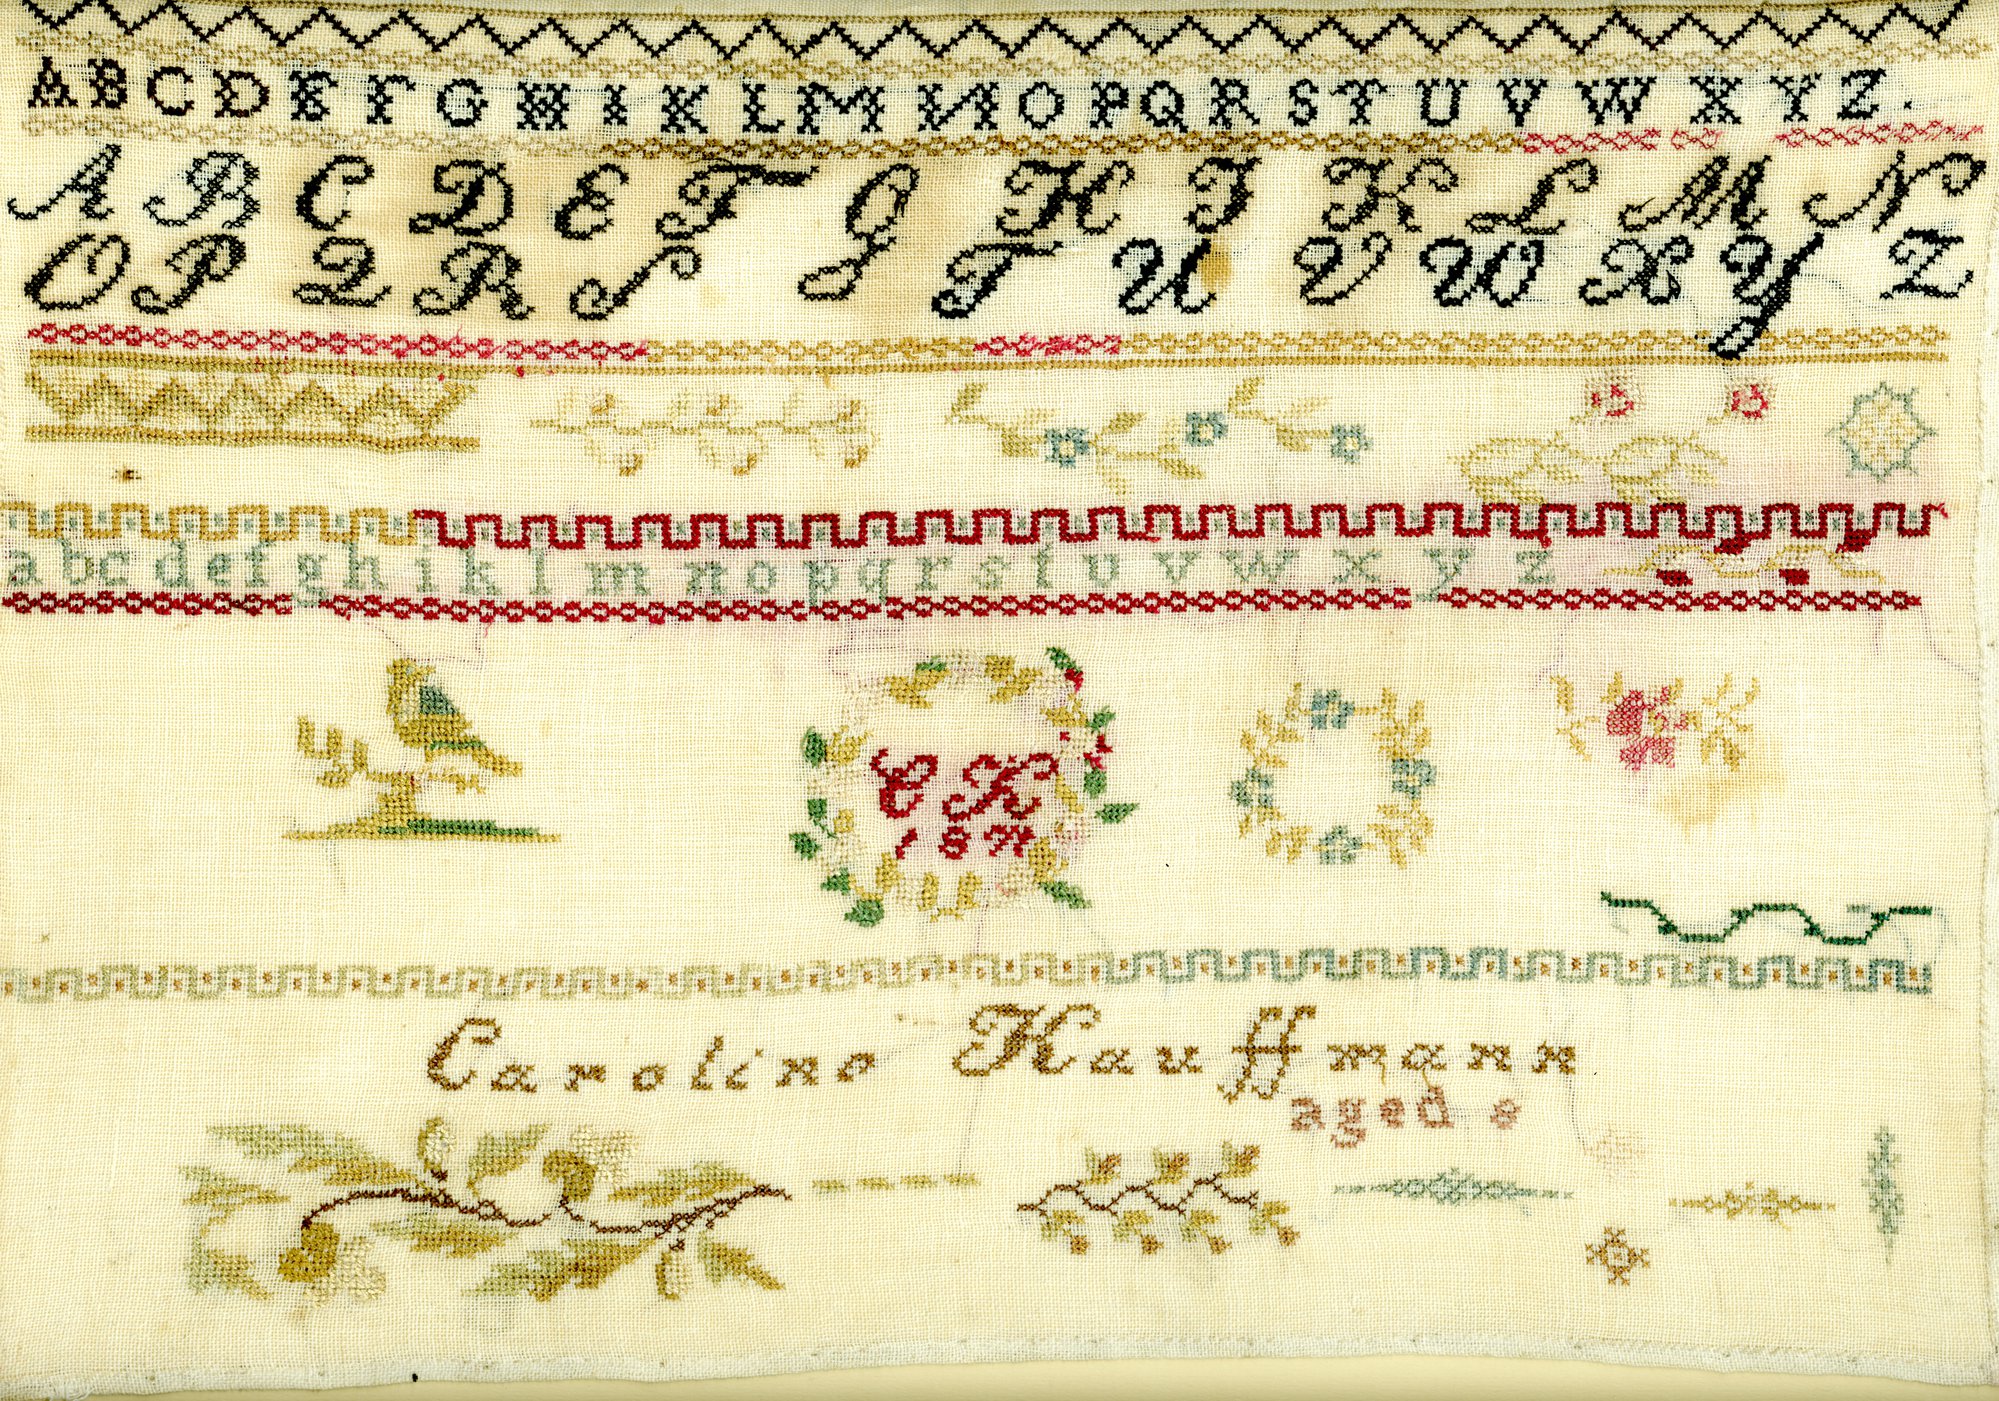 A B C D E F G H I K L M N O P Q R S T U V W X Y Z .
A B C D E F G H I K L M N
O P Q R S T U V W X Y Z
a b c d e f g h i k l m n o p q r s t u v w x y z
C K
1871
Caroline Kauffmann
aged 8